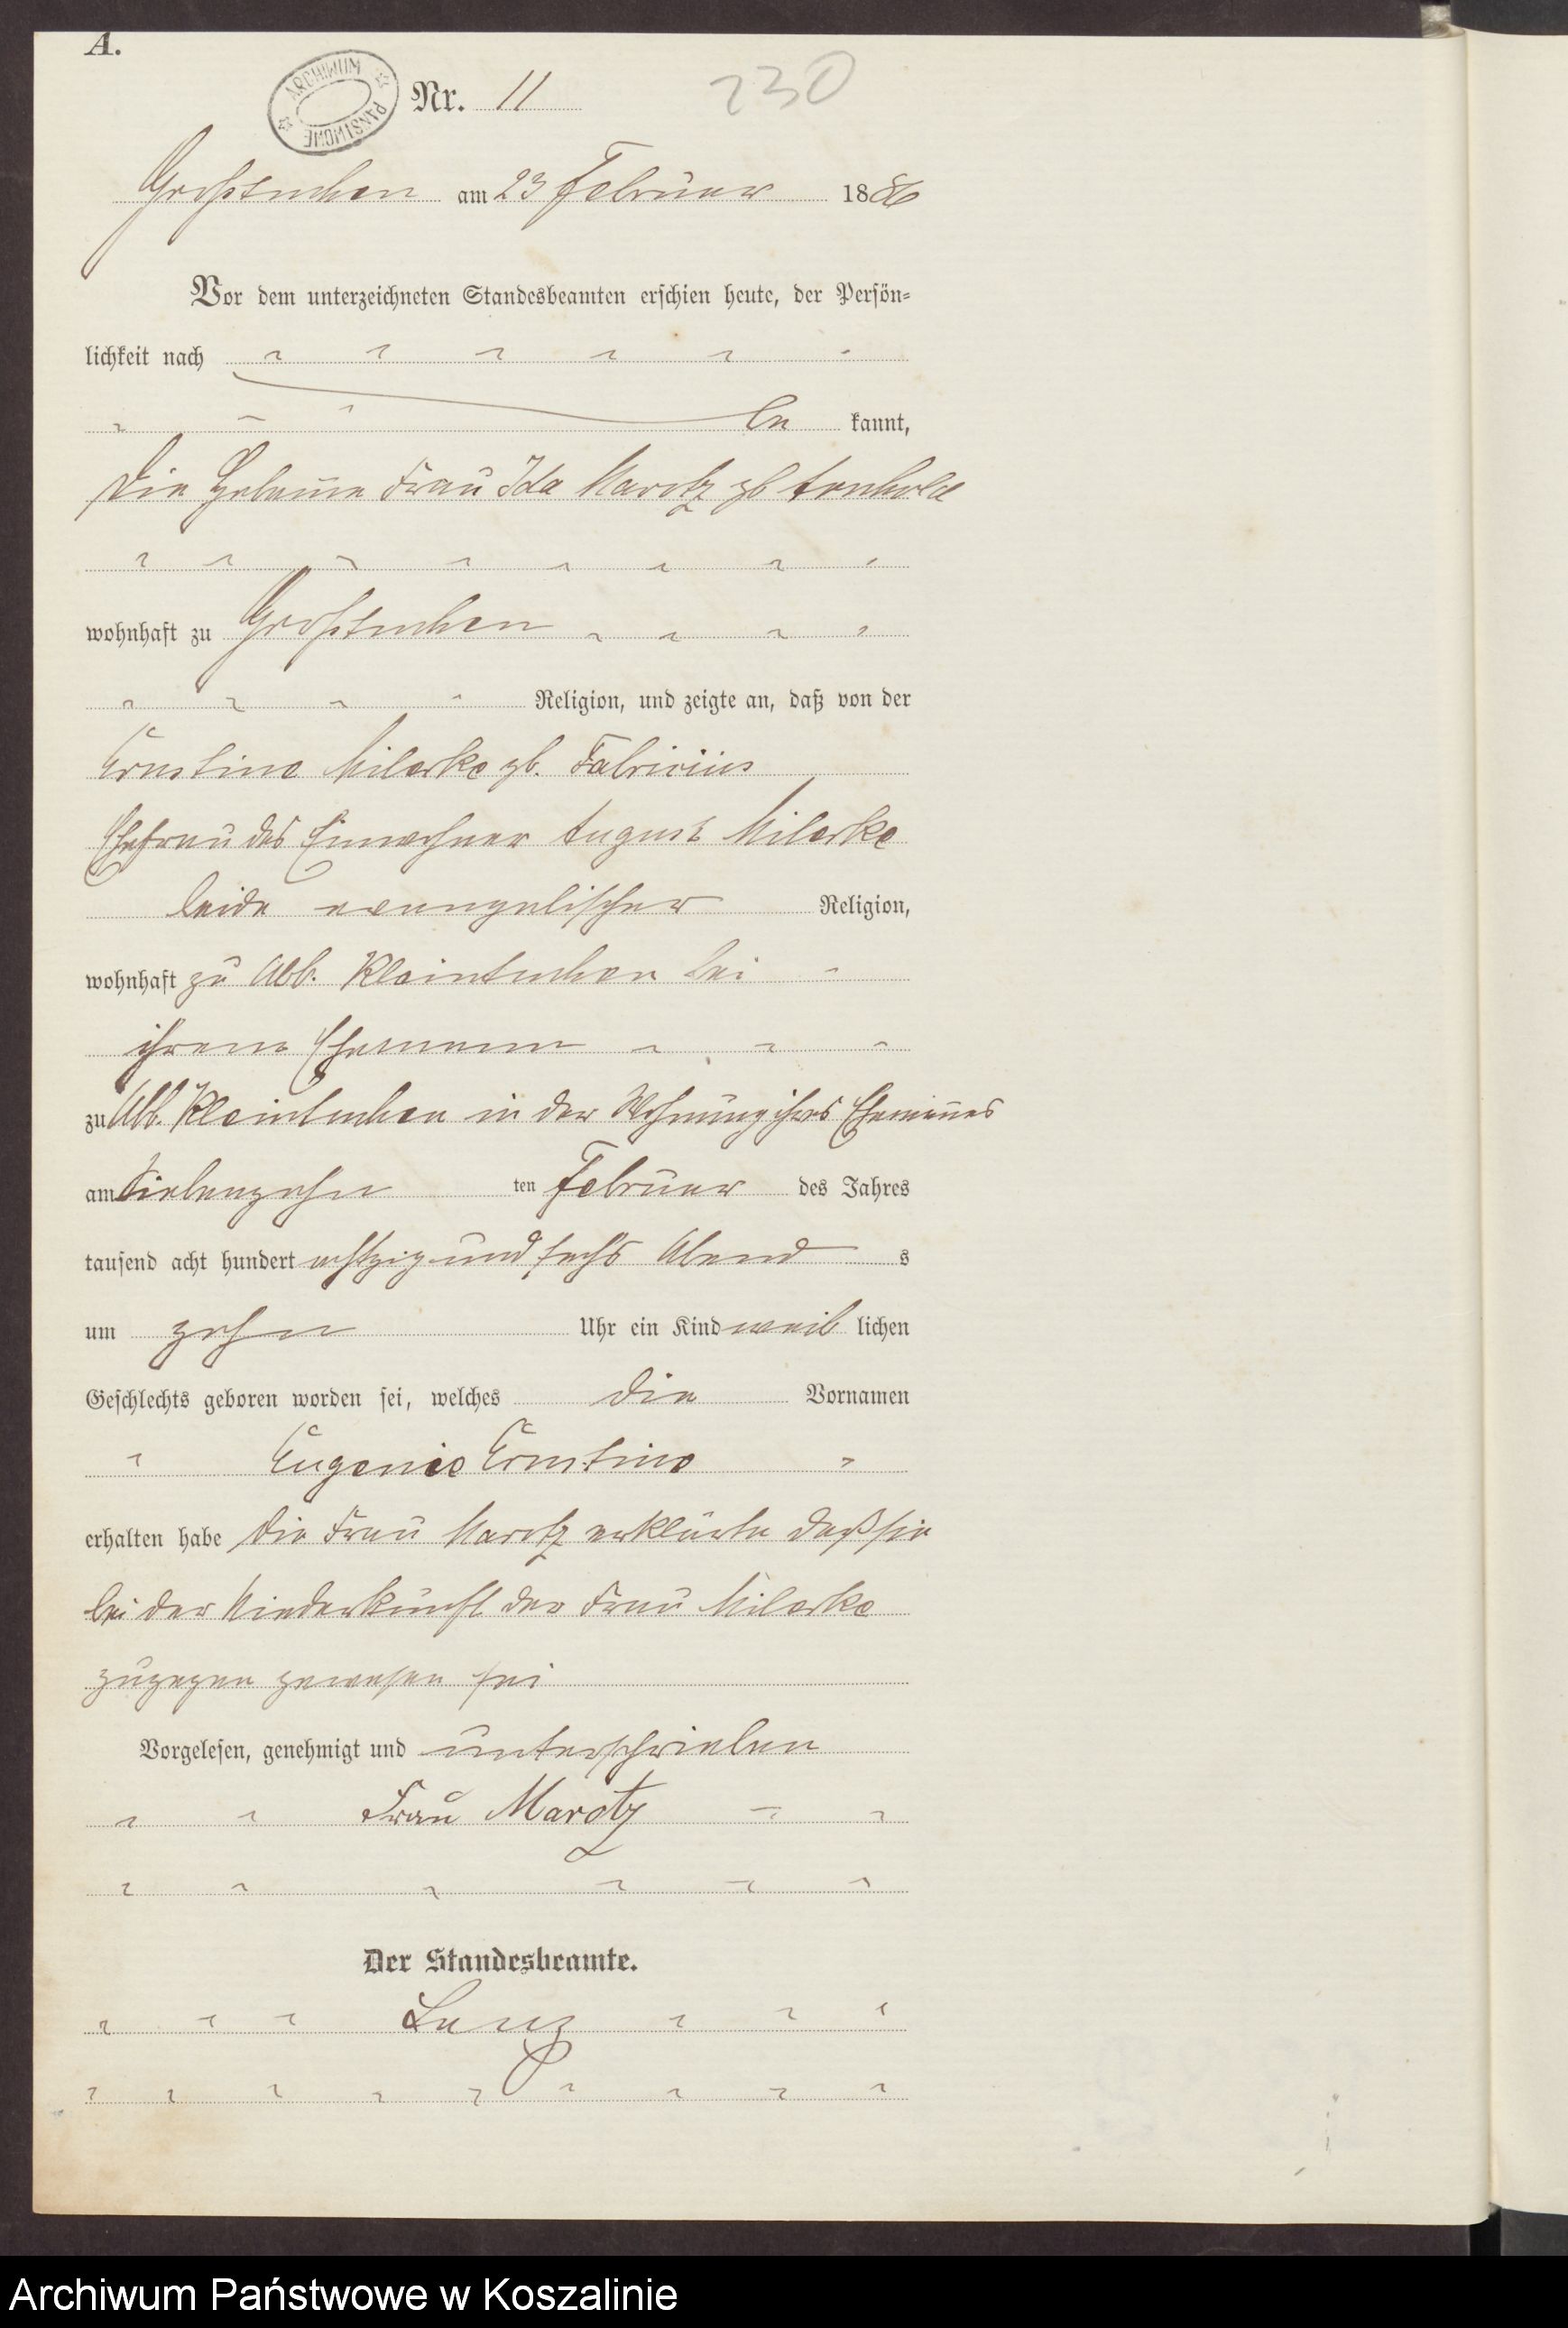 A.
ARCHIWUM PAŃSTWOWE
Nr. 11
230
Großtuchen am 23 Februar 1886
Vor dem unterzeichneten Standesbeamten erschien heute, der Persön-
lichkeit nach
be kannt,
die Hebamme Frau Ida Marotz gb Arnhold
wohnhaft zu Großtuchen
Religion, und zeigte an, daß von der
Ernstine Milerke gb. Fabricius
Ehefrau des Einwohner August Milerke
beide evangelischer Religion,
wohnhaft zu Abb. Kleintuchen bei
ihrem Ehemann
zu Abb. Kleintuchen in der Wohnung ihres Ehemannes
am Siebenzehn ten Februar des Jahres
tausend acht hundert achtzig und sechs Abend s
um zehn Uhr ein Kind weib lichen
Geschlechts geboren worden sei, welches die Vornamen
Eugenie Ernstine
erhalten habe die Frau Marotz erklärte daß sie
bei der Niederkunft der Frau Milerke
zugegen gewesen sei
Vorgelesen, genehmigt und unterschrieben
Frau Marotz
Der Standesbeamte.
Lenz
Archiwum Państwowe w Koszalinie